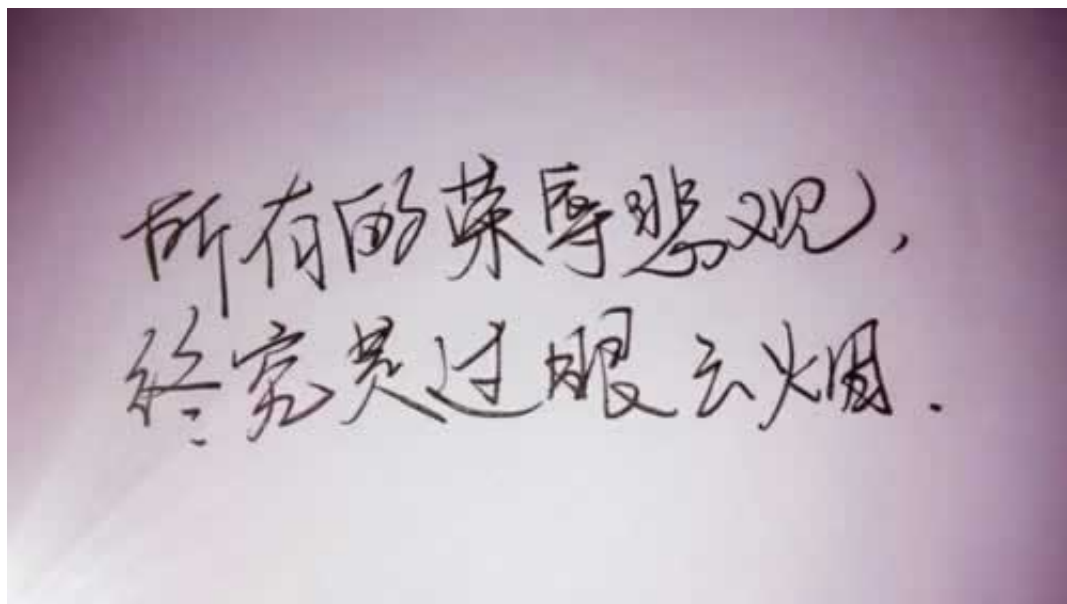 所有的荣辱悲观，
终究是过眼云烟.